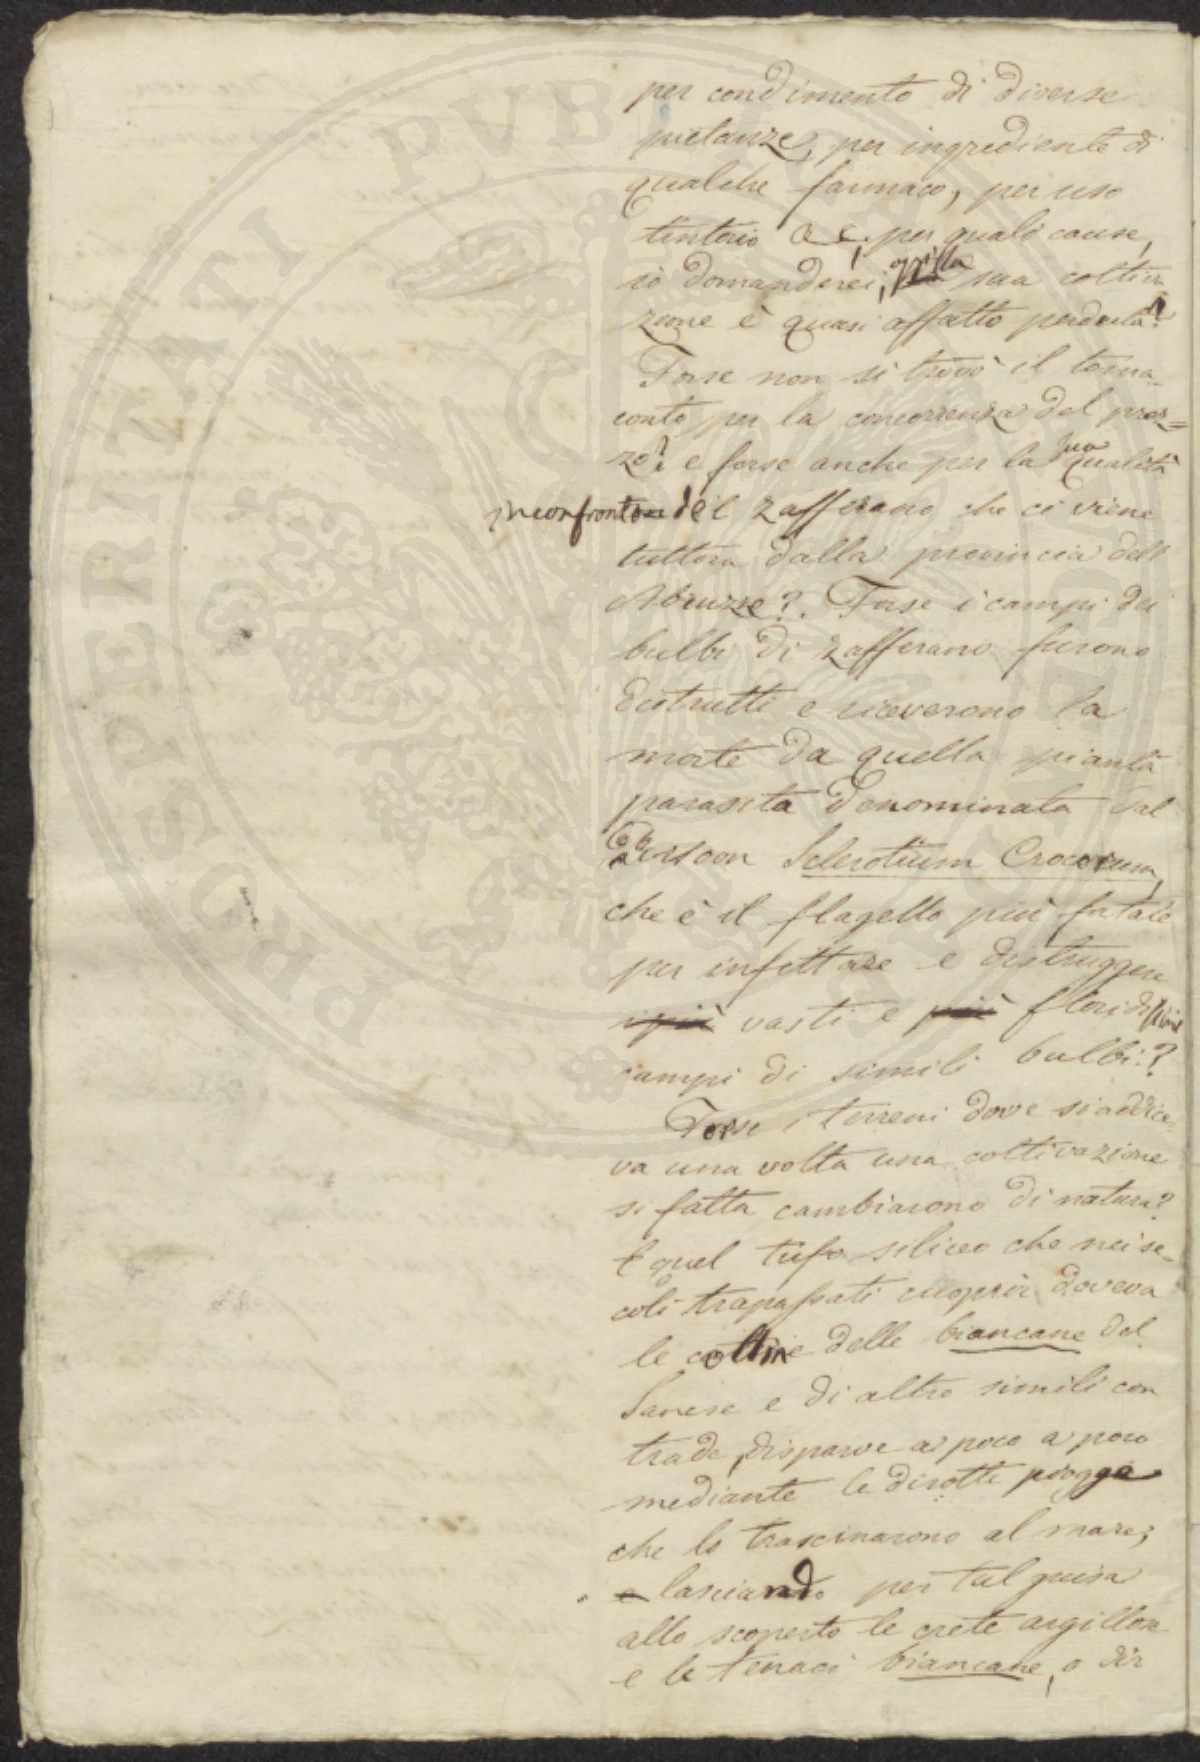 PROSPERITATI PVBLICAE AVGENDAE
per condimento di diverse
pietanze, per ingrediente di
qualche farmaco, per uso
tintorio ec; per quali cause,
io domanderei, oggi la sua coltiva
zione è quasi affatto perduta?
Forse non si trovò il torna-
conto per la concorrenza del prez=
zo? e forse anche per la sua qualità
in confronto del zafferano che ci viene
tuttora dalla provincia dell
Abruzze? Forse i campi dei
bulbi di zafferano furono
distrutti e riceverono la
morte da quella pianta
parasita denominata dal
Persoon Sclerotium Crocorum,
che è il flagello più fatale
per infettare e distruggere
i più vasti e più floridissimi
campi di simili bulbi?
Forse i terreni dove si addice-
va una volta una coltivazione
si fatta cambiarono di natura?
E quel tufo siliceo che nei se-
coli trapassati cuoprir doveva
le colline delle biancane del
Sanese e di altre simili con
trade, disparve a poco a poco
mediante le dirotte piogge
che lo trascinarono al mare;
e lasciando per tal guisa
allo scoperto le crete argillose
e le tenaci biancane, o dir